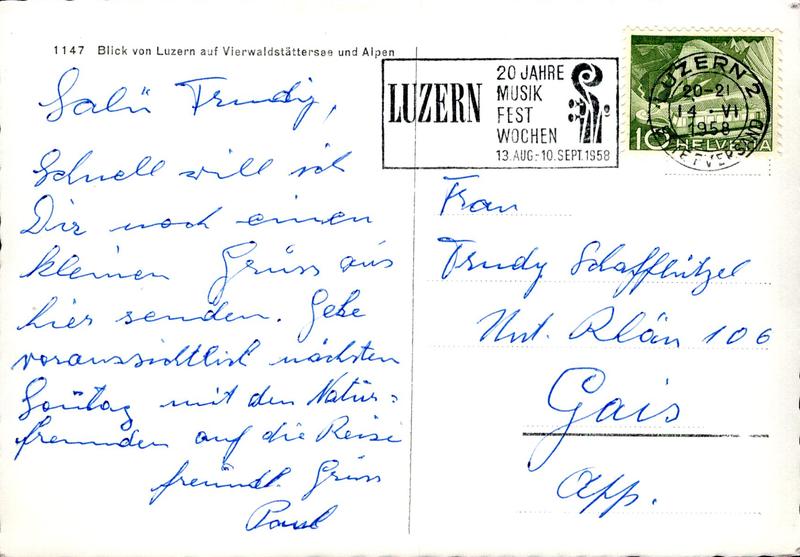 1147 Blick von Luzern auf Vierwaldstättersee und Alpen
Salü Trudy,
Schnell will ich
Dir noch einen
kleinen Gruss aus
hier senden. Gehe
voraussichtlich nächsten
Sontag mit den Natur=
freunden auf die Reise
freundl. Gruss
Paul
LUZERN
20 JAHRE
MUSIK
FEST
WOCHEN
13. AUG.-10. SEPT. 1958
LUZERN 2
20-21
14. VI
1958
BRIEFVERSAND
10 HELVETIA
Frau
Trudy Schafflützel
Unt. Rhän 106
Gais
App.